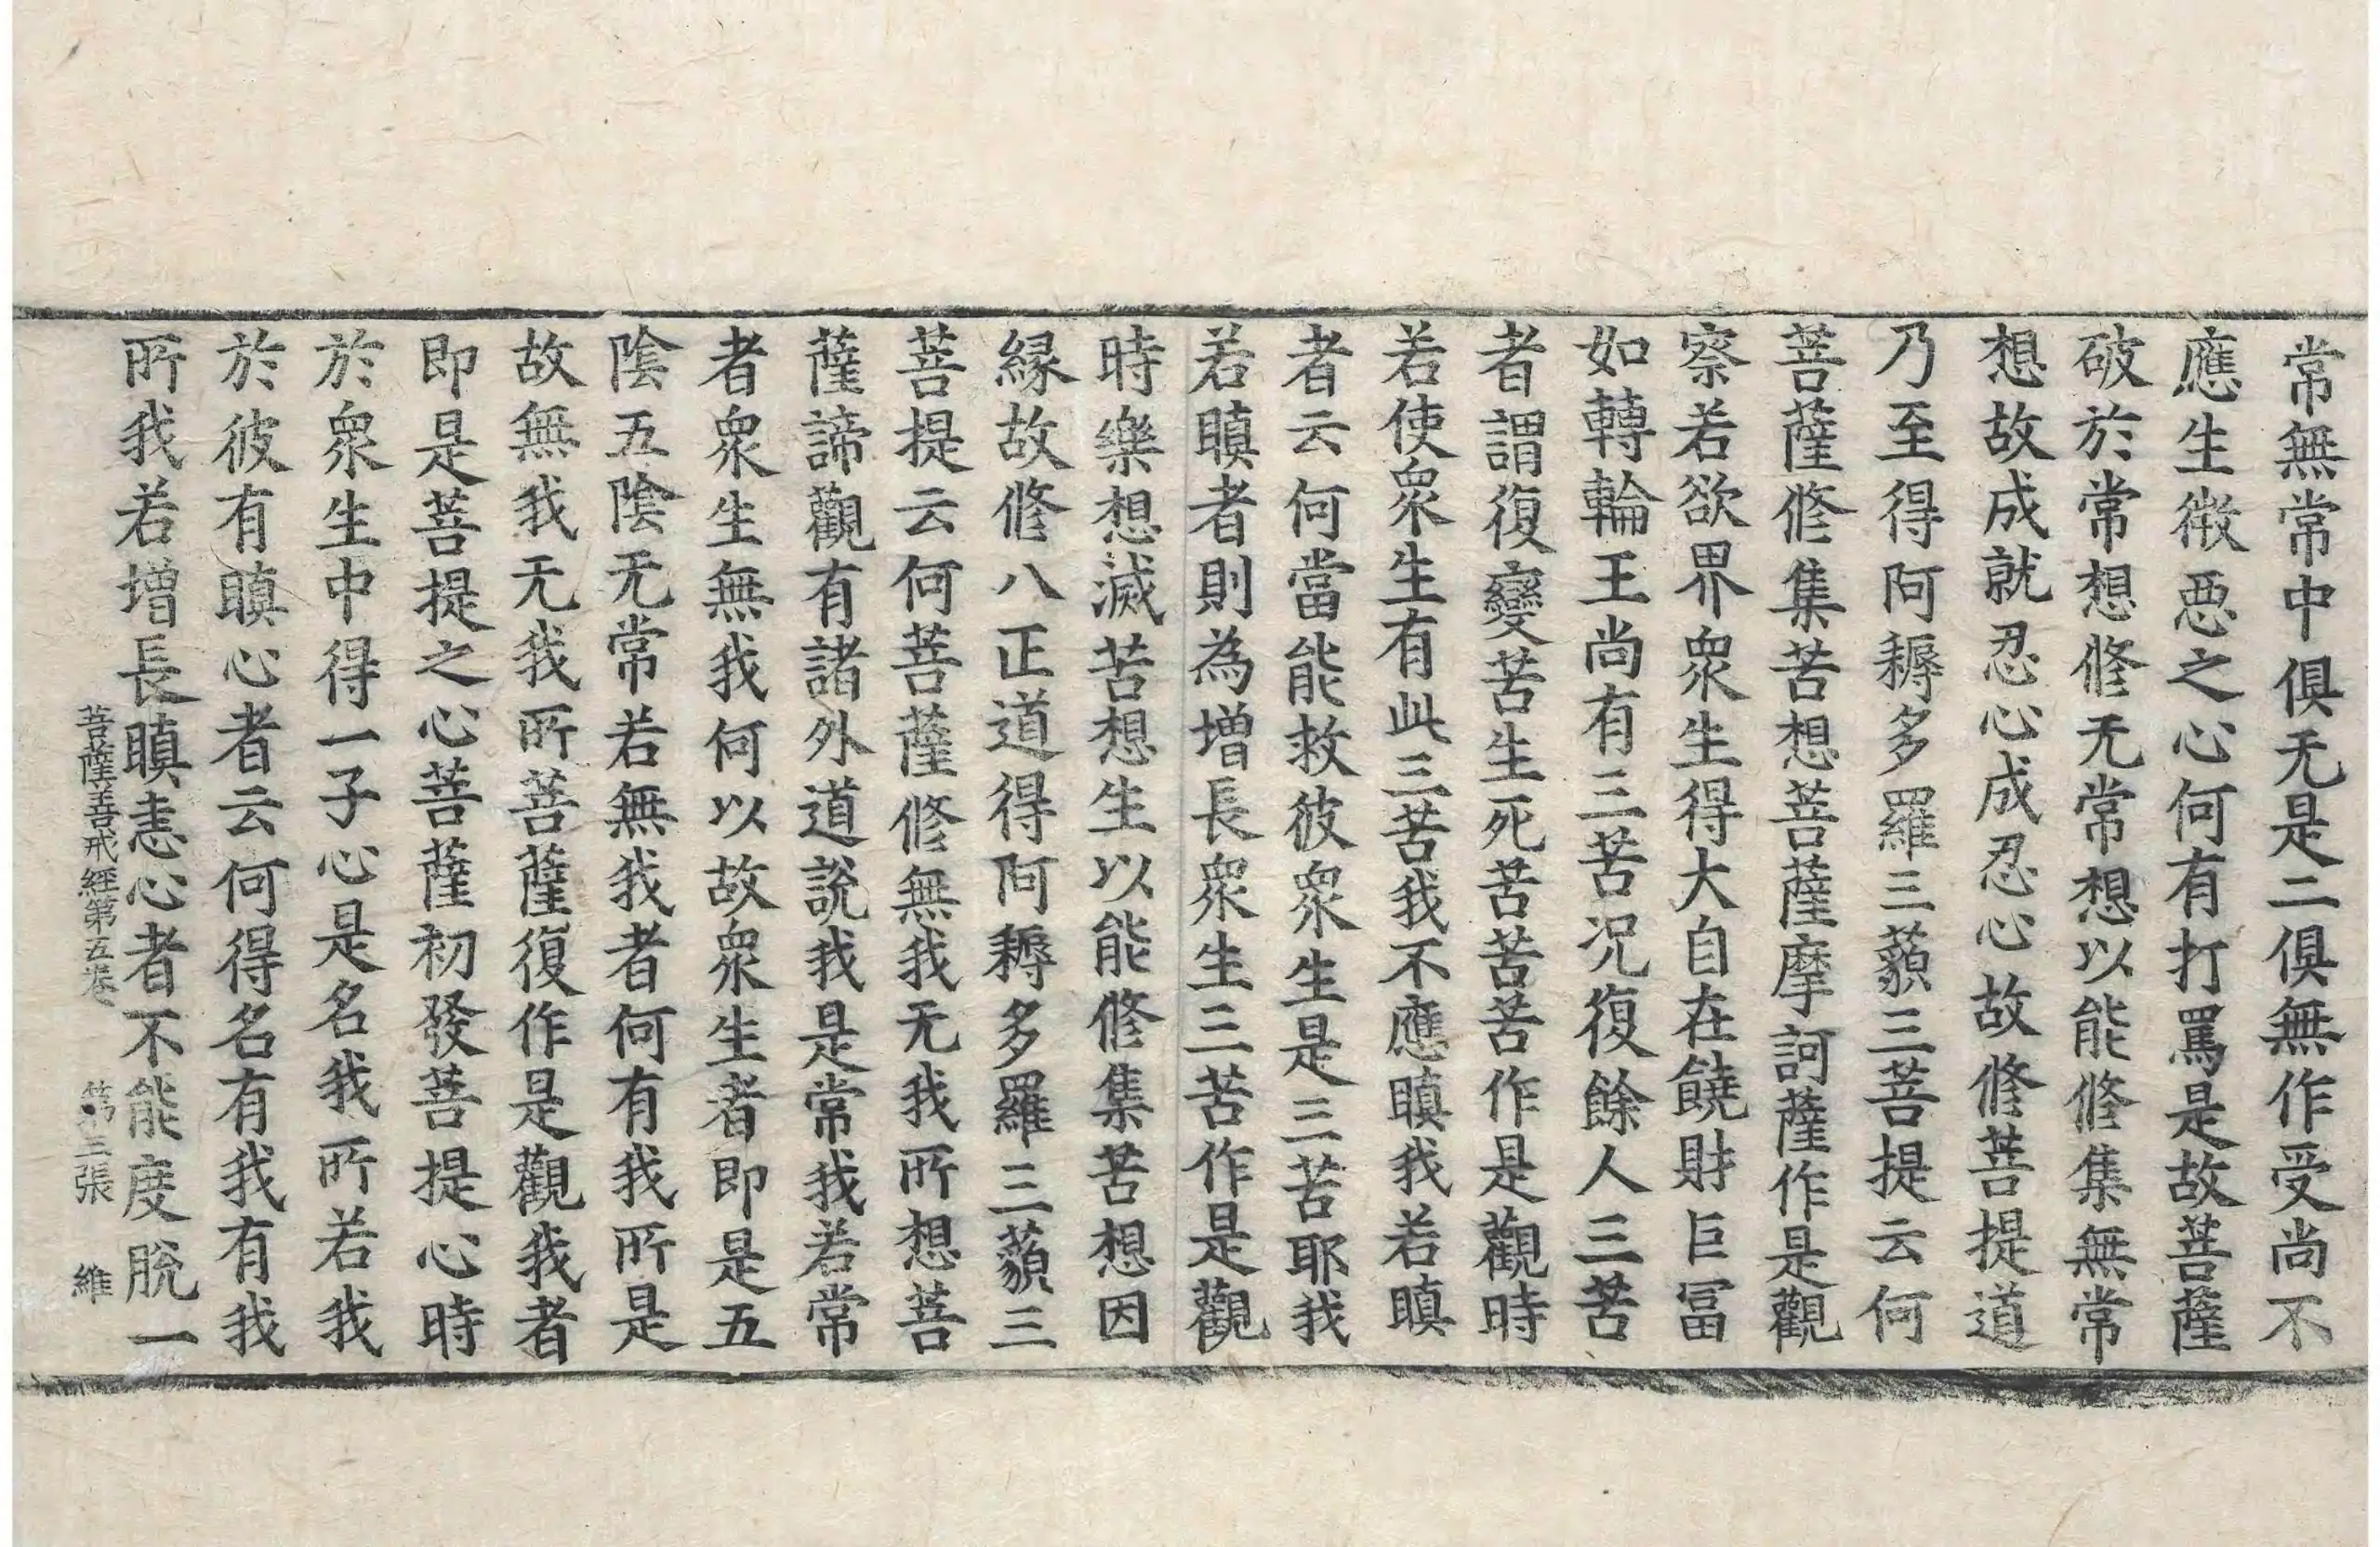 常無常中俱无是二俱無作受尚不
應生微惡之心何有打罵是故菩薩
破於常想修无常想以能修集無常
想故成就忍心成忍心故修菩提道
乃至得阿耨多羅三藐三菩提云何
菩薩修集苦想菩薩摩訶薩作是觀
察若欲界衆生得大自在饒財巨冨
如轉輪王尚有三苦况復餘人三苦
者謂復變苦生死苦苦苦作是觀時
若使衆生有此三苦我不應瞋我若瞋
者云何當能救彼衆生是三苦耶我
若瞋者則為增長衆生三苦作是觀
時樂想滅苦想生以能修集苦想因
緣故修八正道得阿耨多羅三藐三
菩提云何菩薩修無我无我所想菩
薩諦觀有諸外道說我是常我若常
者衆生無我何以故衆生者即是五
陰五陰无常若無我者何有我所是
故無我无我所菩薩復作是觀我者
即是菩提之心菩薩初發菩提心時
於衆生中得一子心是名我所若我
於彼有瞋心者云何得名有我有我
所我若增長瞋恚心者不能度脫一
菩薩善戒經第五卷 第三張 維